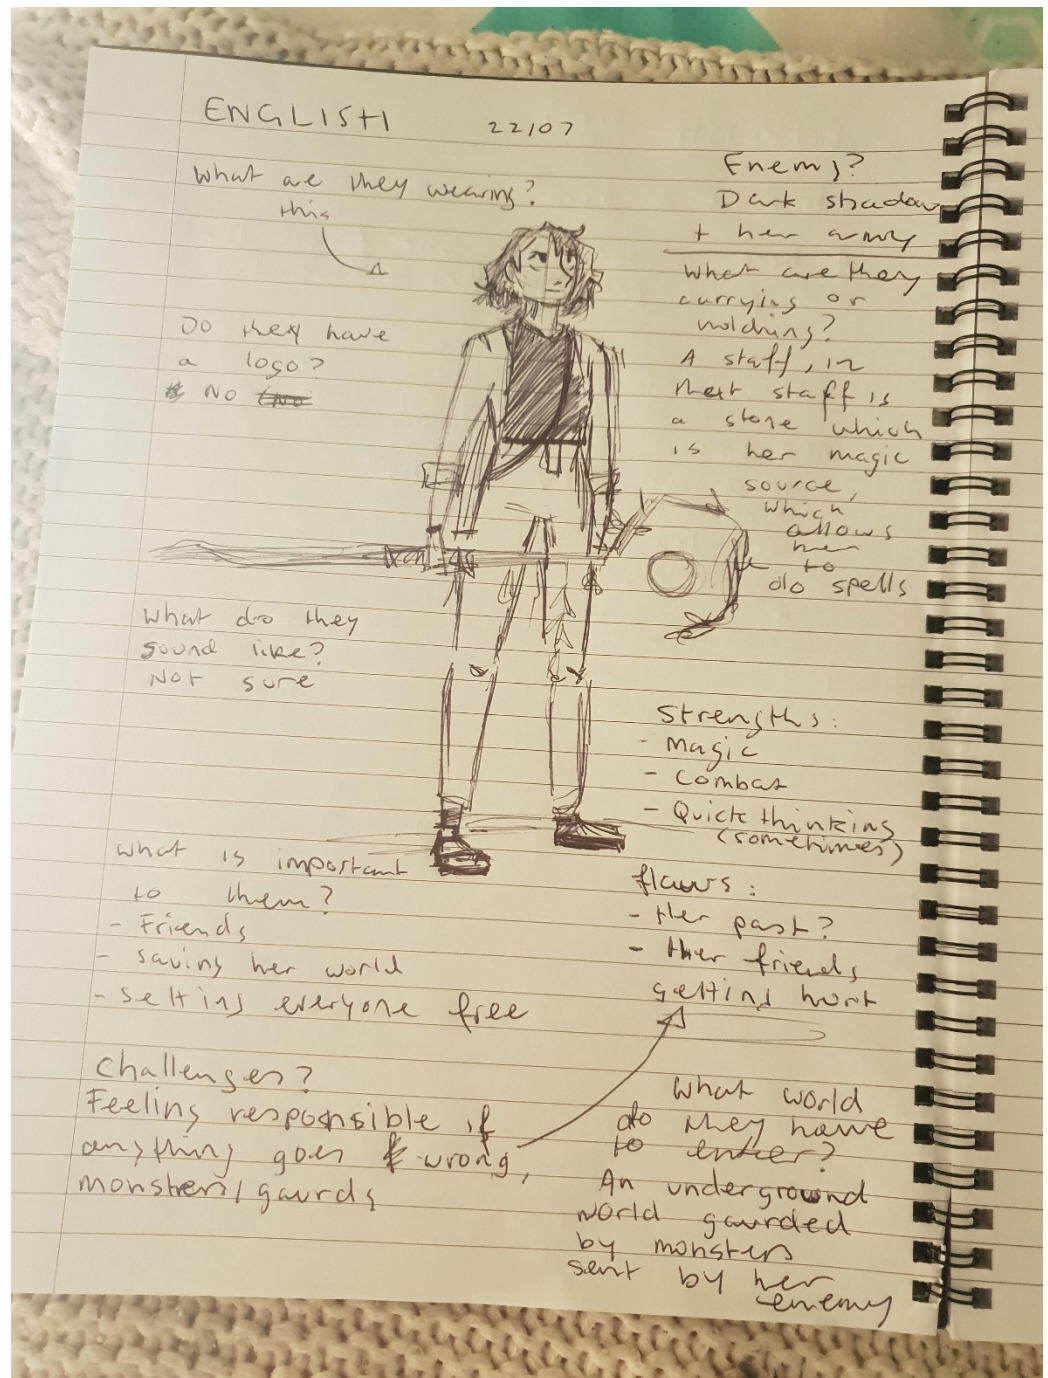 ENGLISH 22/07
What are they wearing?
this
Do they have
a logo?
No
What do they
sound like?
Not sure
What is important
to them?
- Friends
- saving her world
- setting everyone free
Challenges?
Feeling responsible if
anything goes wrong,
monsters/gaurds
Enemy?
Dark shadow
+ her army
What are they
carrying or
holding?
A staff, in
that staff is
a stone which
is her magic
source,
which
allows
her
to
do spells
Strengths:
- Magic
- Combat
- Quick thinking
(sometimes)
flaws:
- Her past?
- Her friends
getting hurt
What world
do they have
to enter?
An underground
world gaurded
by monsters
sent by her
enemy